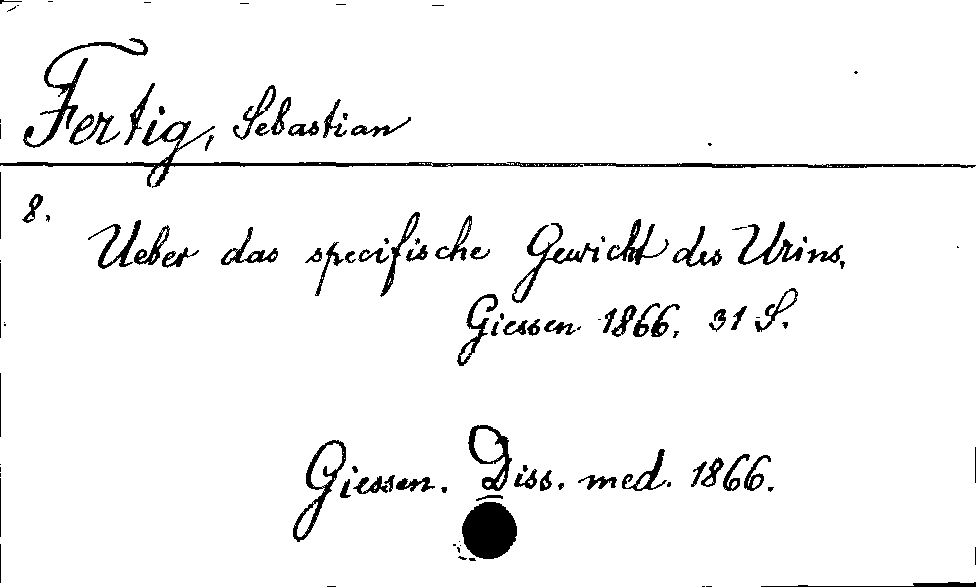 Fertig, Sebastian
8.
Ueber das specifische Gewicht des Urins.
Giessen 1866. 31 S.
Giessen. Diss. med. 1866.